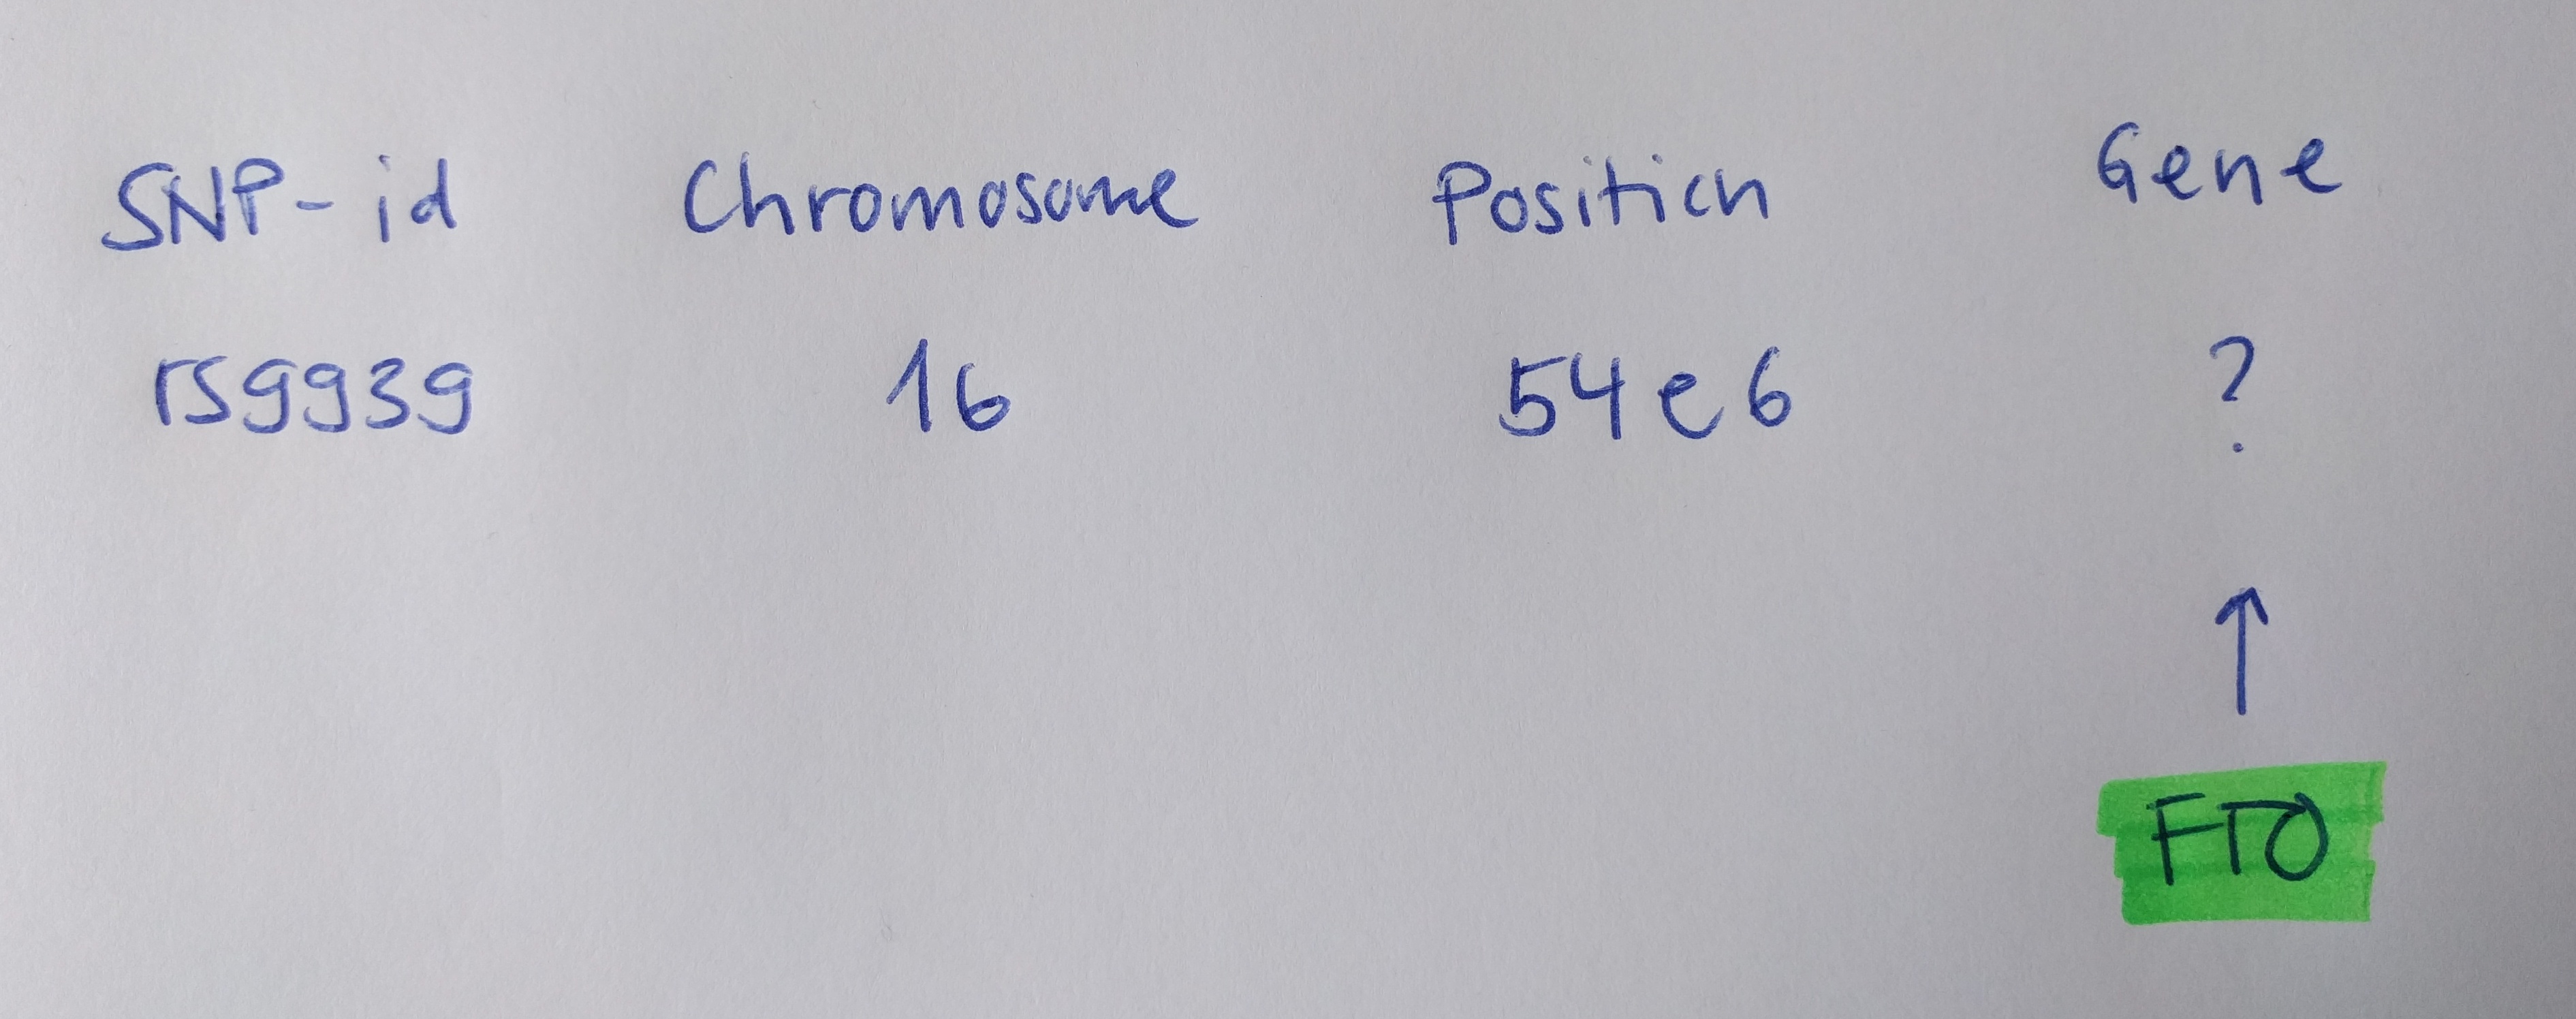 SNP-id Chromosome Position Gene
rs9939 16 54e6 ?
↑
FTO